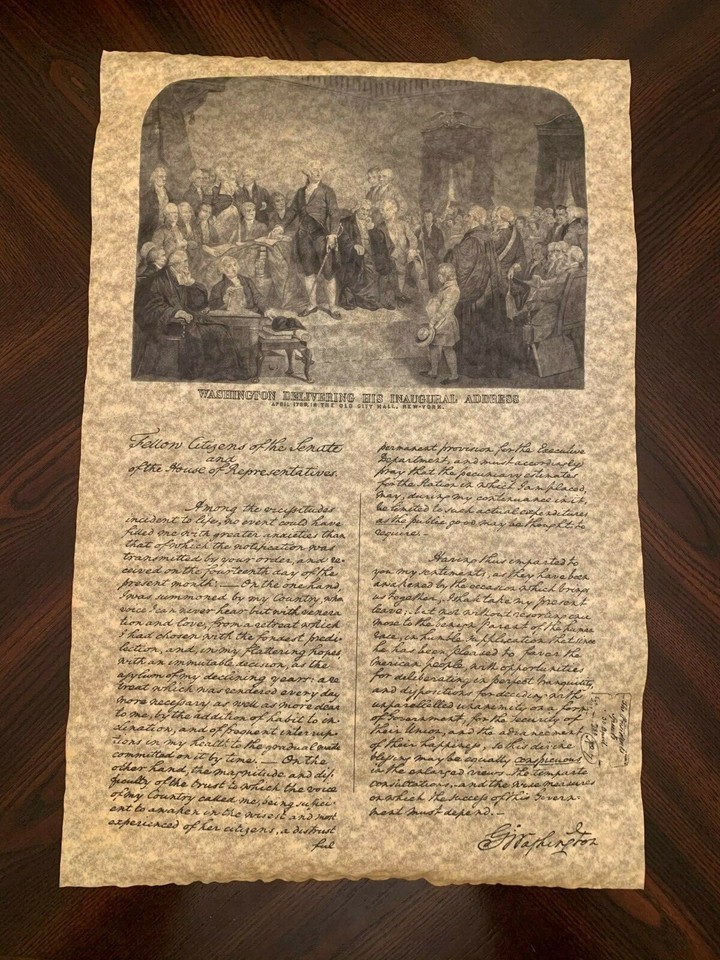 WASHINGTON DELIVERING HIS INAUGURAL ADDRESS
APRIL 1789, IN THE OLD CITY HALL, NEW-YORK.
Fellow Citizens of the Senate
and
of the House of Representatives.
Among the vicissitudes
incident to life, no event could have
filled me with greater anxieties than
that of which the notification was
transmitted by your order, and re-
ceived on the fourteenth day of the
present month. — On the one hand,
I was summoned by my Country, whose
voice I can never hear but with venera-
tion and love, from a retreat which
I had chosen with the fondest predi-
lection, and, in my flattering hopes,
with an immutable decision, as the
asylum of my declining years: a re-
treat which was rendered every day
more necessary as well as more dear
to me, by the addition of habit to in-
clination, and of frequent interrup-
tions in my health to the gradual waste
committed on it by time. — On the
other hand, the magnitude and dif-
ficulty of the trust to which the voice
of my Country called me, being suffici-
ent to awaken in the wisest and most
experienced of her citizens, a distrust
ful
permanent provision for the Executive
Department, and must accordingly
pray that the pecuniary estimates
for the Station in which I am placed,
may, during my continuance in it,
be limited to such actual expenditures
as the public good may be thought to
require. —
Having thus imparted to
you my sentiments, as they have been
awakened by the occasion which brings
us together, I shall take my present
leave; but not without resorting once
more to the benign Parent of the human
race, in humble supplication that since
he has been pleased to favor the
American people, with opportunities
for deliberating in perfect tranquility,
and dispositions for deciding with
unparellelled unanimity on a form
of Government, for the security of
their Union, and the advancement
of their happiness; so his divine
blessing may be equally conspicuous
in the enlarged views — the temperate
consultations, — and the wise measures
on which the success of this Govern-
ment must depend. —
G. Washington